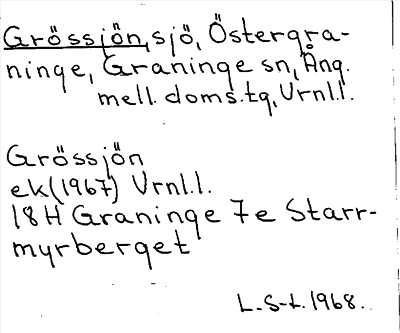 Grössjön, sjö, Östergra-
ninge, Graninge sn, Ång.
mell. doms.tg, Vrnl.l.
Grössjön
ek (1967) Vrnl.l.
18H Graninge 7e Starr-
myrberget
L. S-t. 1968.